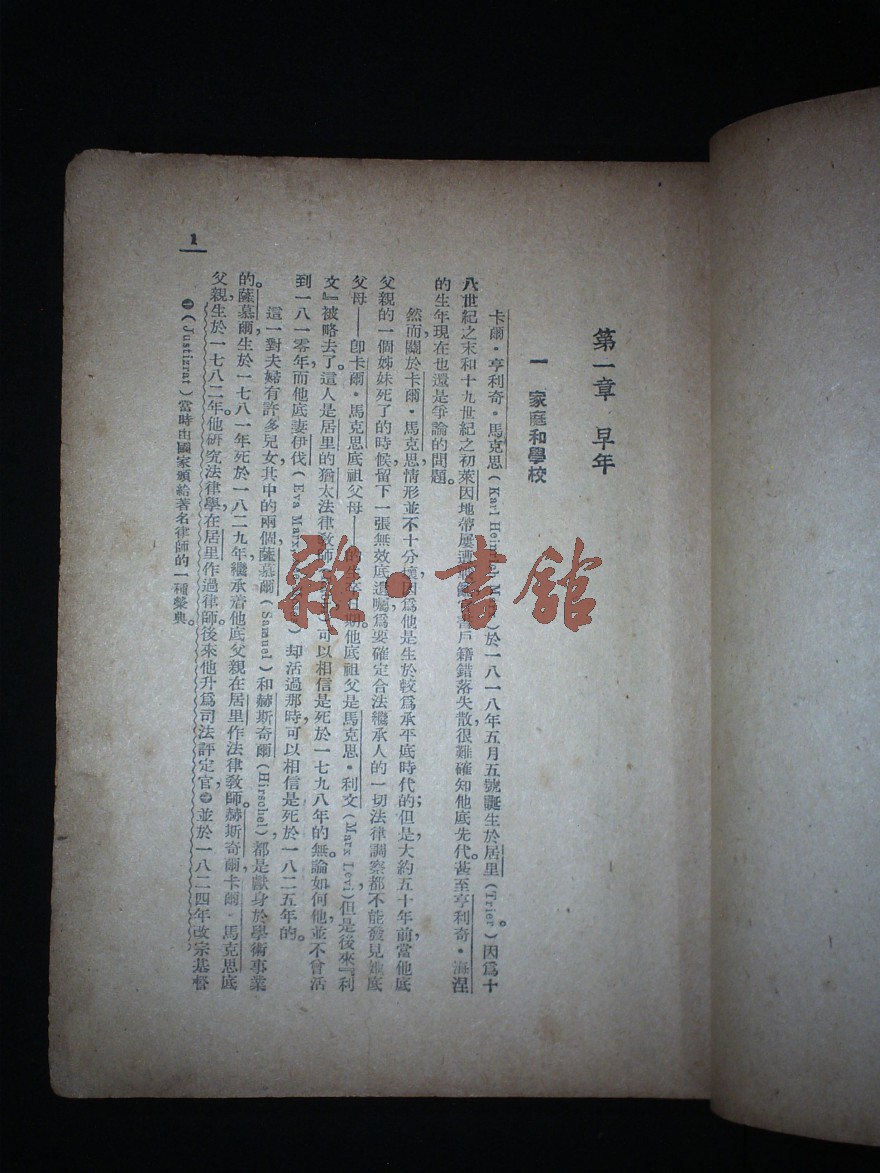 第一章 早年
一 家庭和學校
卡爾·亨利奇·馬克思(Karl Heinrich Marx)於一八一八年五月五號誕生於居里(Trier)。因爲十
八世紀之末和十九世紀之初萊因地帶屢遭 戶籍錯落失散很難確知他底先代。甚至亨利奇·海涅
的生年現在也還是爭論的問題。
然而關於卡爾·馬克思情形並不十分壞,因爲他是生於較爲承平底時代的;但是大約五十年前,當他底
父親的一個姊妹死了的時候,留下一張無效底遺囑,爲要確定合法繼承人的一切法律調察都不能發見她底
父母——卽卡爾·馬克思底祖父母——的 日期。他底祖父是馬克思·利文(Marx Levi),但是後來『利
文』被略去了。這人是居里的猶太法律教師, 可以相信是死於一七九八年的。無論如何,他並不曾活
到一八一零年,而他底妻伊伐(Eva Marx )却活過那時,可以相信是死於一八二五年的。
這一對夫婦有許多兒女,其中的兩個薩慕爾(Samuel)和赫斯奇爾(Hirschel)都是獻身於學術事業
的。薩慕爾生於一七八一年,死於一八二九年,繼承着他底父親在居里作法律敎師。赫斯奇爾,卡爾·馬克思底
父親,生於一七八二年。他研究法律學,在居里作過律師。後來他升爲司法評定官,㊀並於一八二四年改宗基督
㊀(Justizrat)當時由國家頒給著名律師的一種榮典。
1
雜·書館